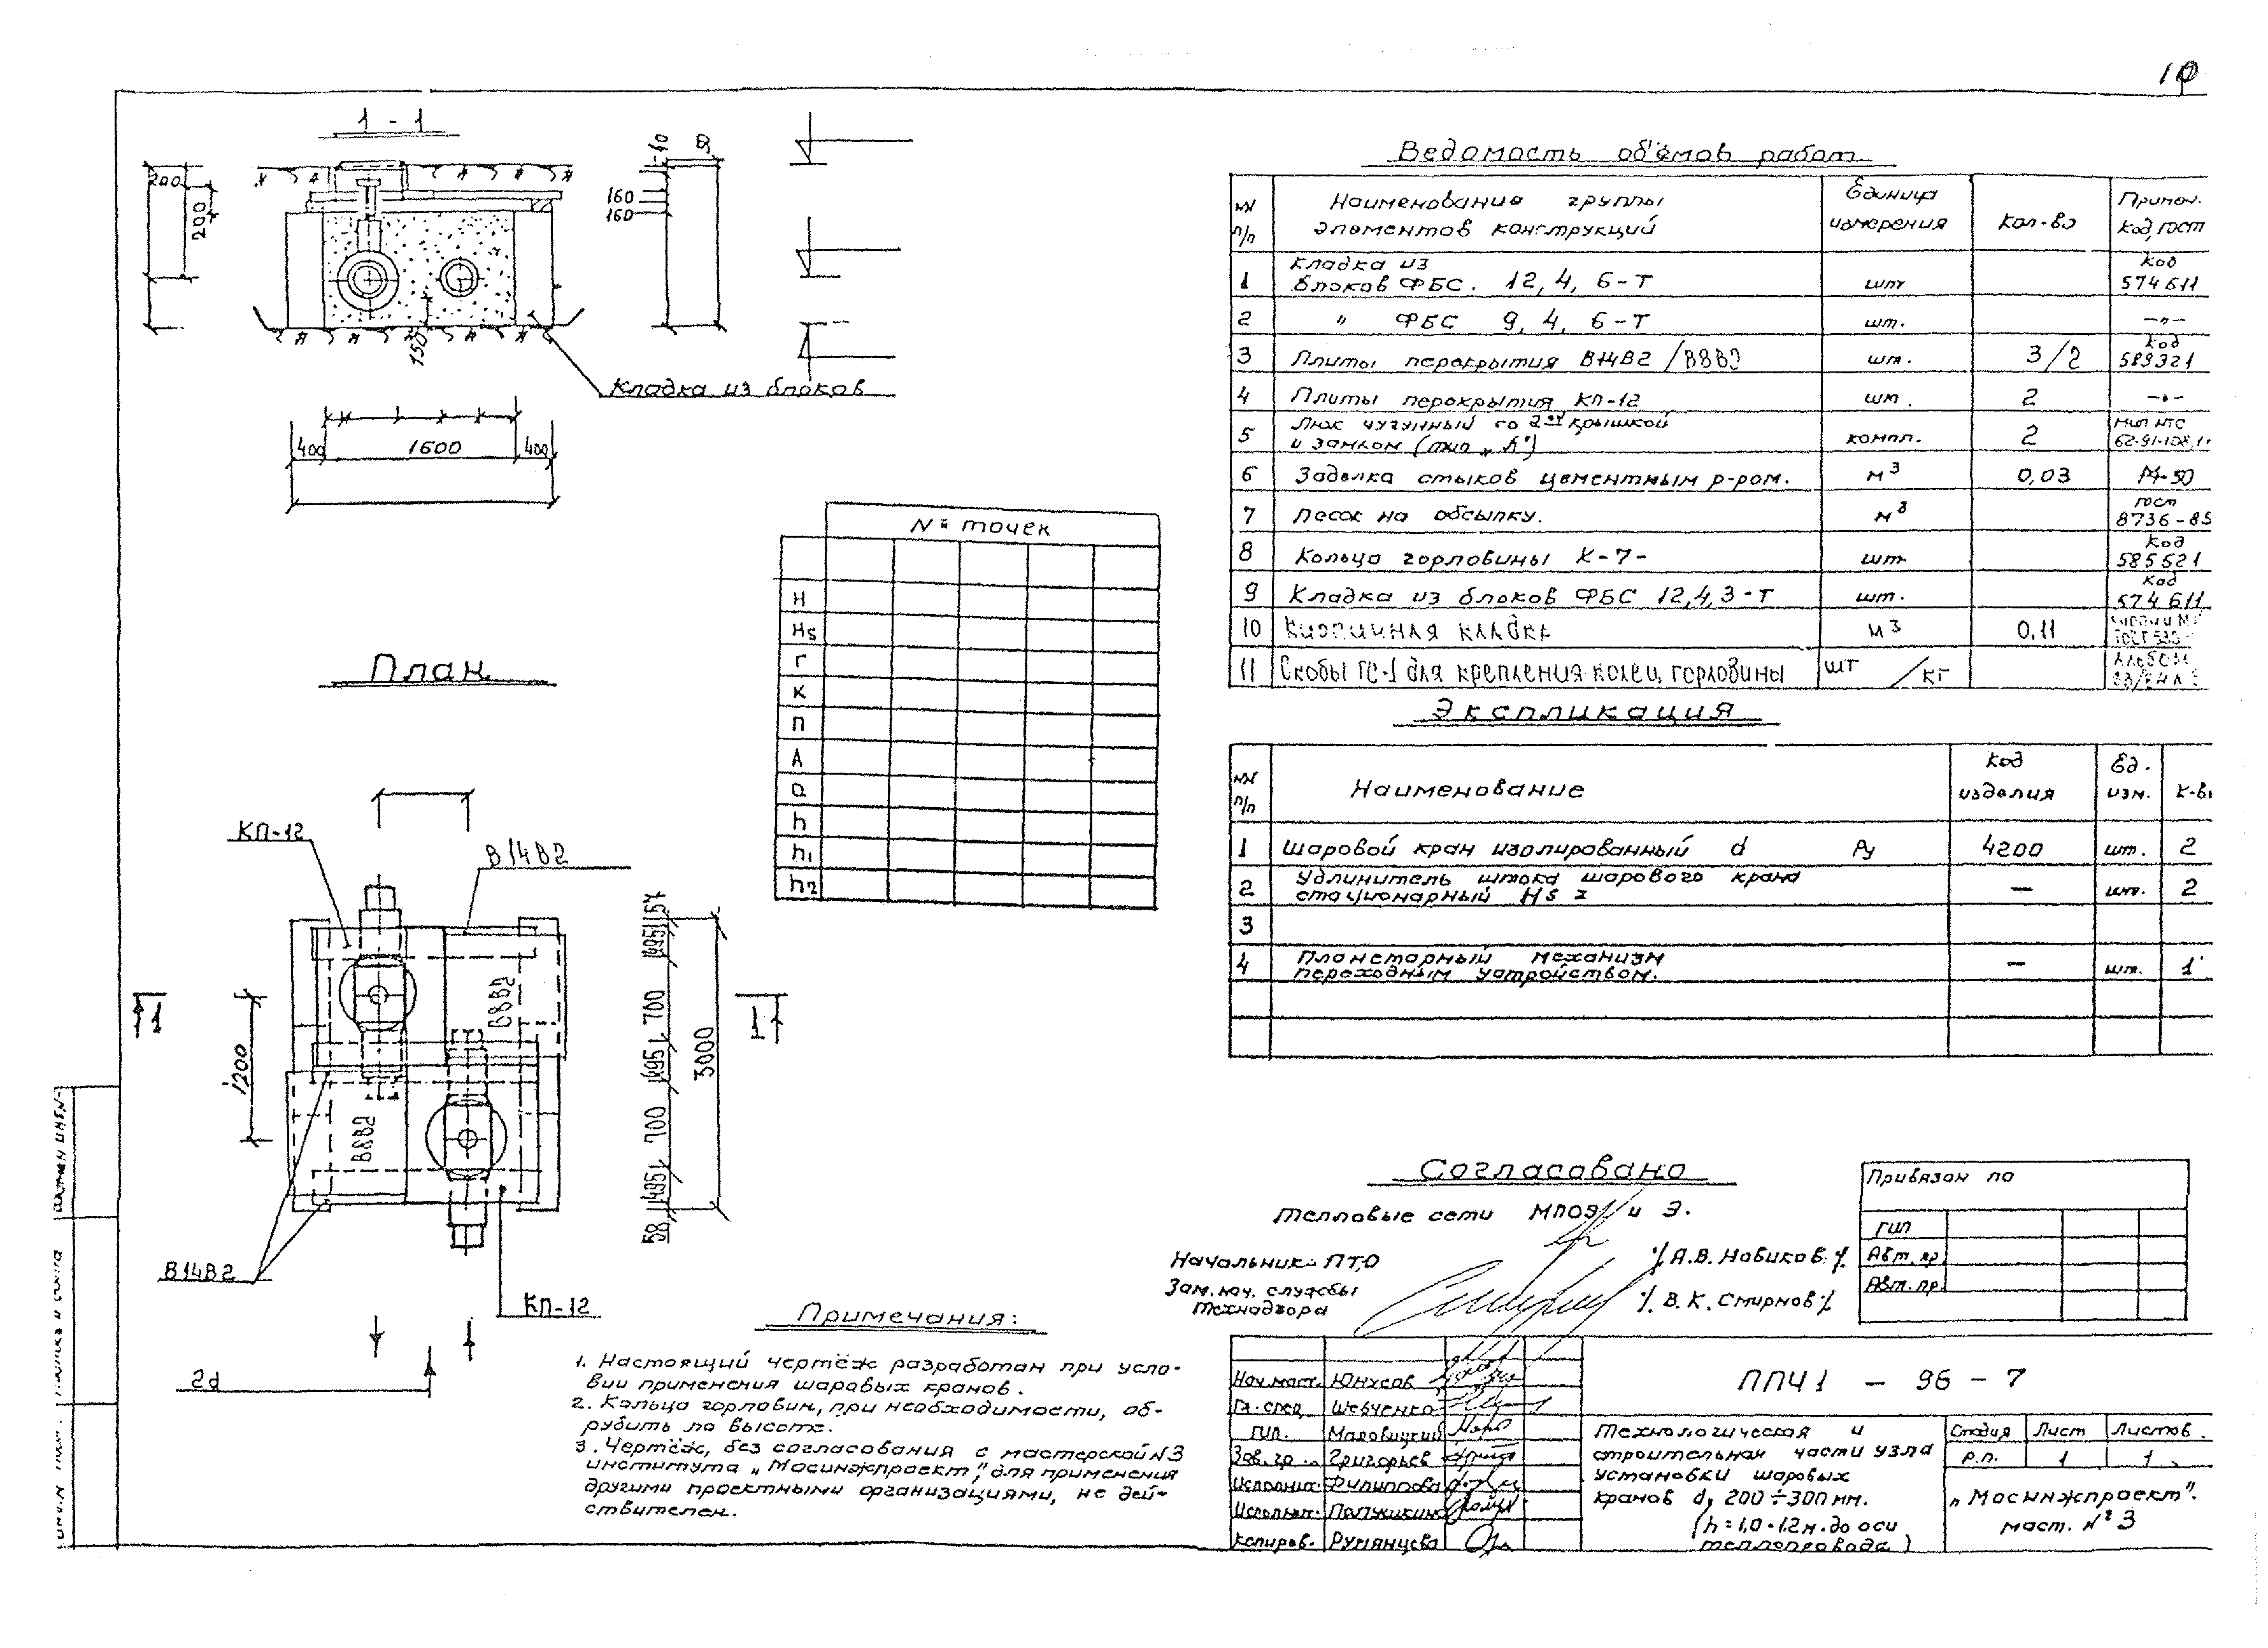 10
1 - 1
200
200
40
160
160
150
Кладка из блоков
400
1600
400
Ведомость объёмов работ
NN п/п
Наименование группы элементов конструкций
Единица измерения
Кол-во
Примеч. Код, гост
1 Кладка из блоков ФБС. 12, 4, 6-Т шт Код 574611
2 " ФБС 9, 4, 6-Т шт. —"—
3 Плиты перекрытия В14В2/В8В2 шт. 3/2 Код 589321
4 Плиты перекрытия КП-12 шт. 2 —"—
5 Люк чугунный со 2ой крышкой и замком (тип "Л") компл. 2
6 Заделка стыков цементным р-ром. м3 0,03 М-50
7 Песок на обсыпку. м3 гост 8736-85
8 Кольца горловины К-7- шт Код 585521
9 Кладка из блоков ФБС 12,4,3-Т шт. Код 574611
10 Кирпичная кладка м3 0,11
11 Скобы ГС-1 для крепления колец горловины шт/кг Альбом
N= точек
H
Hs
Г
К
П
А
а
h
h1
h2
План
КП-12
В14В2
В8В2
В8В2
1
1
1200
57
495
700
495
700
495
58
3000
В14В2
КП-12
2d
Экспликация
NN п/п
Наименование
Код изделия
Ед. изм.
К-во
1 Шаровой кран изолированный d Ру 4200 шт. 2
2 Удлинитель штока шарового крана стационарный Hs = — шт. 2
3
4 Планетарный механизм переходным устройством. — шт. 1
Согласовано
Тепловые сети МПОЭ и Э.
Начальник ПТО
/. А.В. Новиков ./
Зам. нач. службы
технадзора
/. В.К. Смирнов ./
Привязан по
ГИП
Авт. пр.
Авт. пр.
Примечания:
1. Настоящий чертёж разработан при усло-
вии применения шаровых кранов.
2. Кольца горловин, при необходимости, об-
рубить по высоте.
3. Чертёж, без согласования с мастерской N3
института "Мосинжпроект", для применения
другими проектными организациями, не дей-
ствителен.
Нач. маст. Юнусов
Гл. спец. Шевченко
ГИП. Маховицкий
Зав. гр. Григорьев
Исполнит. Филиппова
Исполнит.
Копиров. Румянцева
ППЧ1 - 96 - 7
Технологическая и
строительная части узла
установки шаровых
кранов dу 200÷300 мм.
(h = 1,0-1.2 м. до оси
теплопровода)
Стадия Лист Листов.
Р.п. 1 1
"Мосинжпроект".
маст. №3